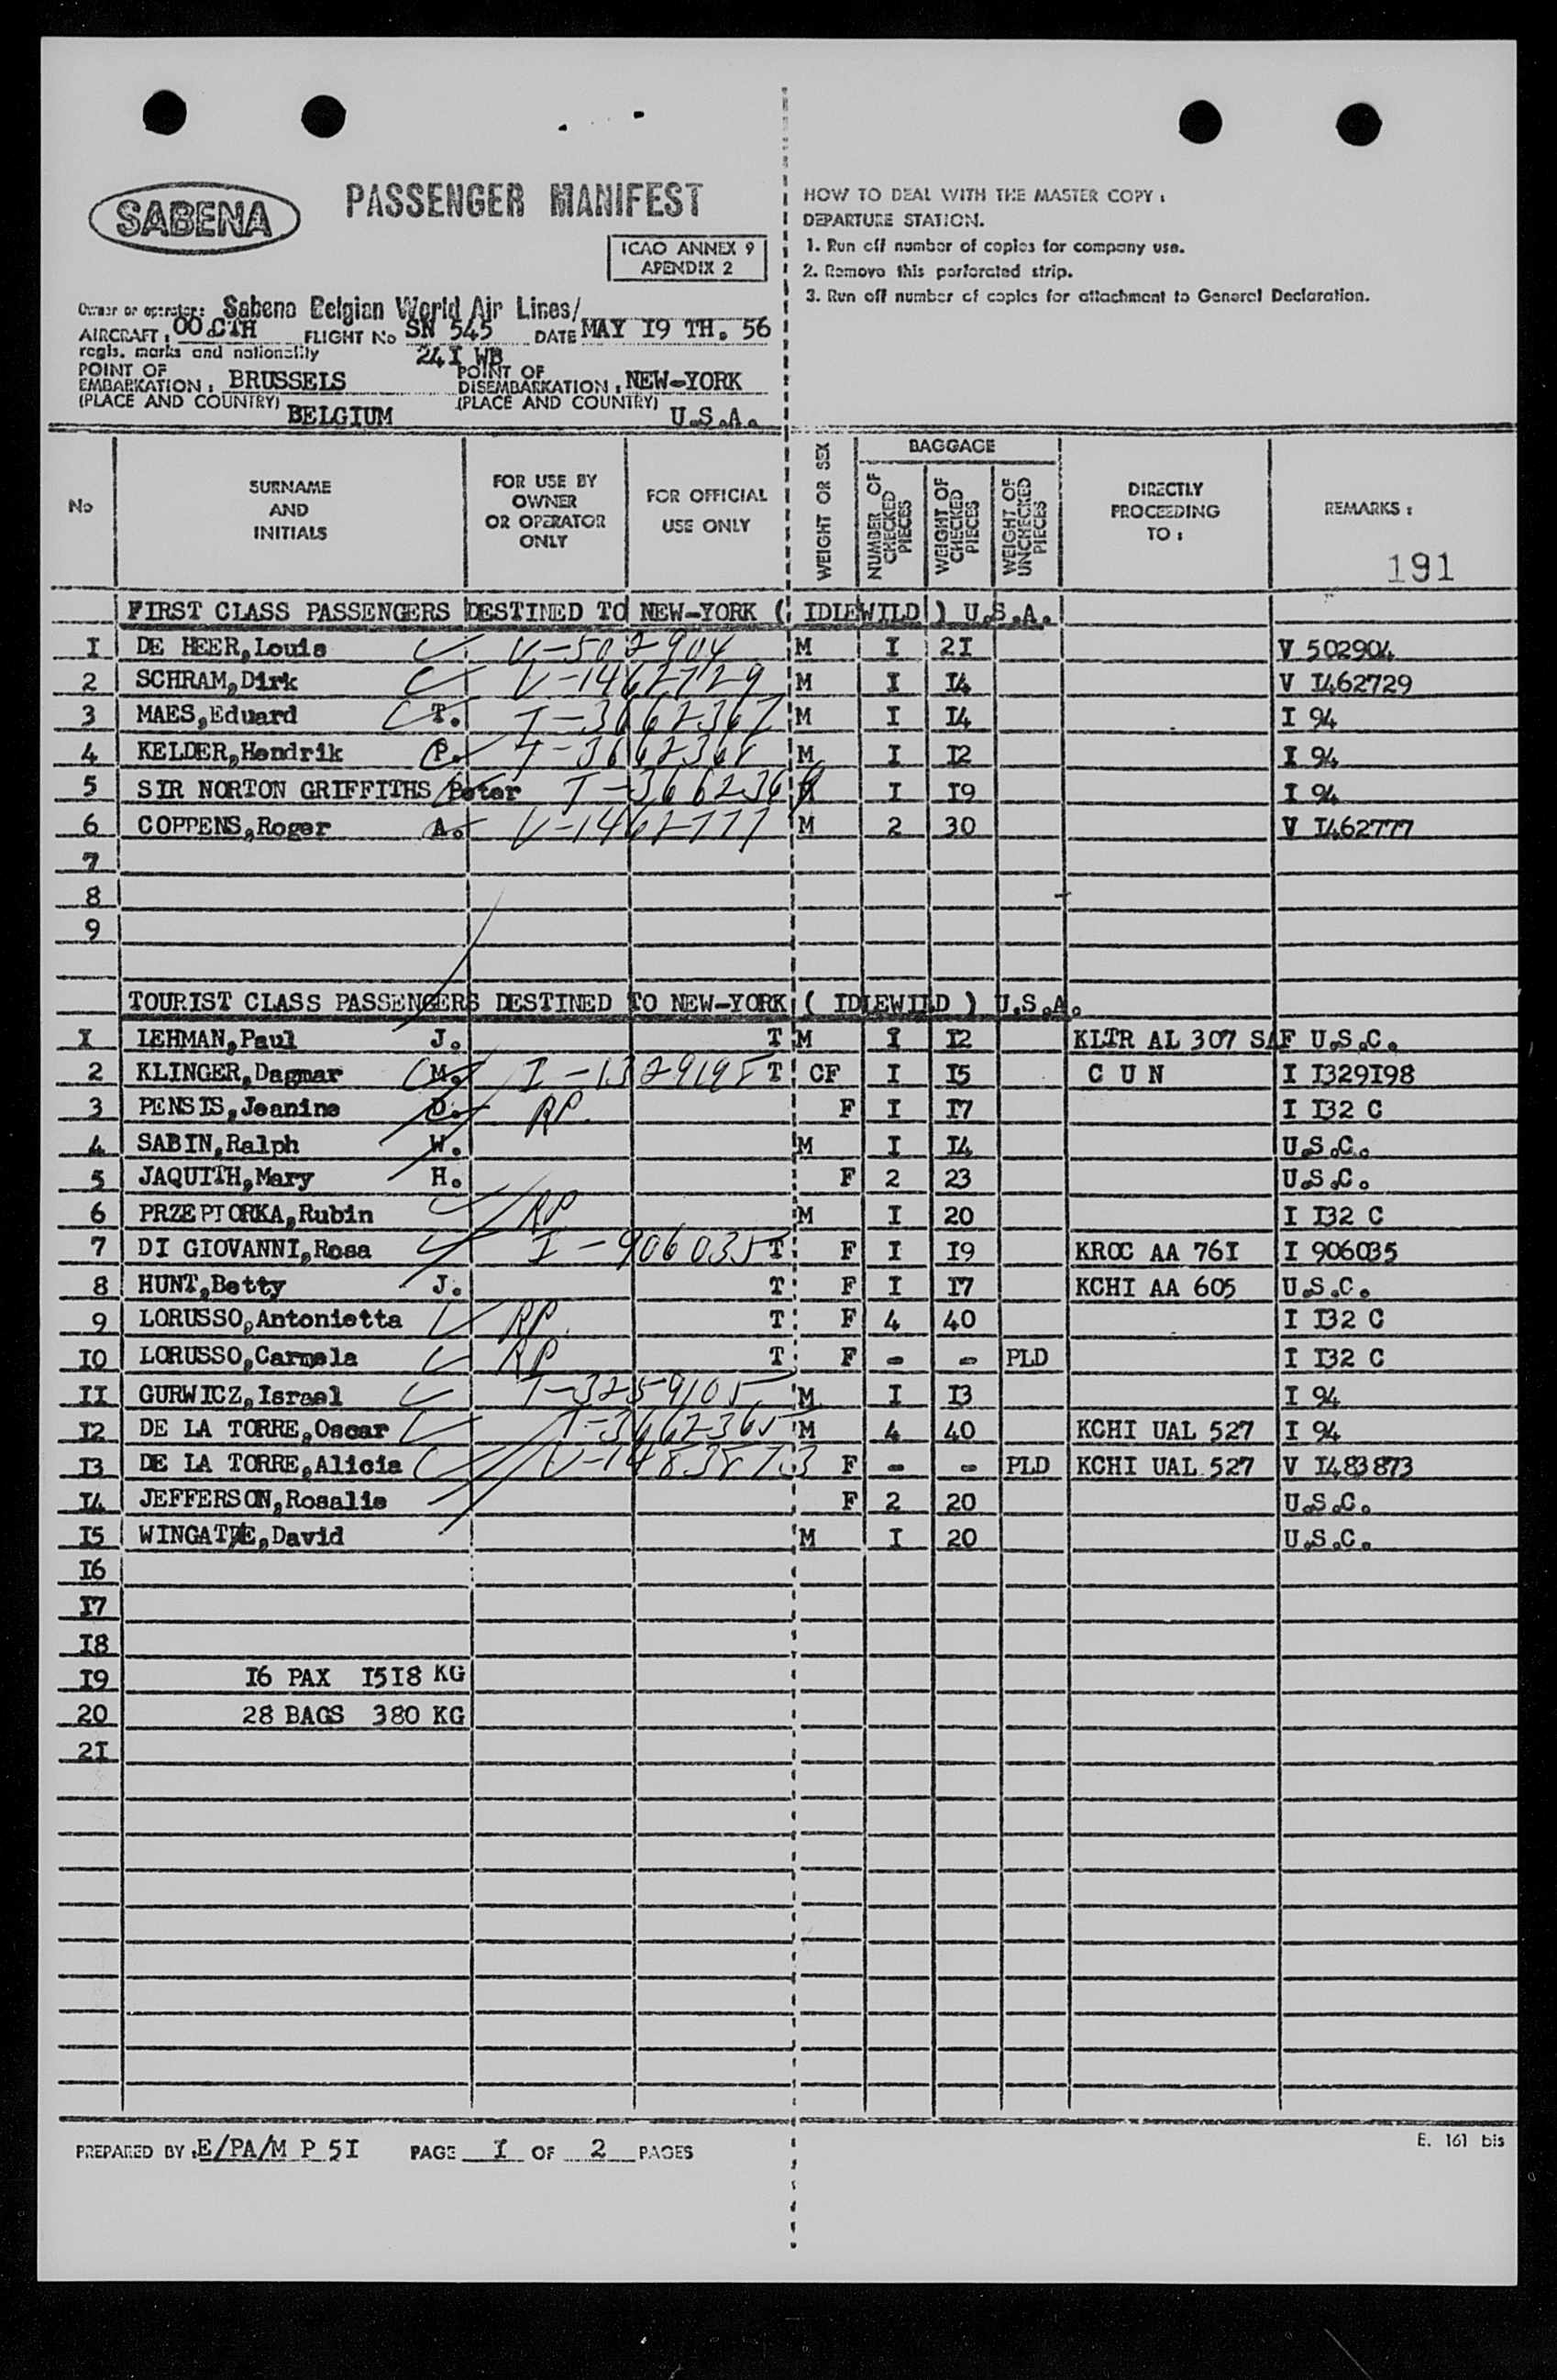 SABENA
PASSENGER MANIFEST
ICAO ANNEX 9
APENDIX 2
HOW TO DEAL WITH THE MASTER COPY :
DEPARTURE STATION.
1. Run off number of copies for company use.
2. Remove this perforated strip.
3. Run off number of copies for attachment to General Declaration.
Owner or operator: Sabena Belgian World Air Lines/
AIRCRAFT : OO.CTH FLIGHT No SN 545 DATE MAY I9 TH. 56
regis. marks and nationality 24I WB
POINT OF EMBARKATION : BRUSSELS POINT OF DISEMBARKATION : NEW-YORK
(PLACE AND COUNTRY) BELGIUM (PLACE AND COUNTRY) U.S.A.
No SURNAME AND INITIALS FOR USE BY OWNER OR OPERATOR ONLY FOR OFFICIAL USE ONLY WEIGHT OR SEX BAGGAGE NUMBER OF CHECKED PIECES WEIGHT OF CHECKED PIECES WEIGHT OF UNCHECKED PIECES DIRECTLY PROCEEDING TO : REMARKS :
191
FIRST CLASS PASSENGERS DESTINED TO NEW-YORK ( IDLEWILD ) U.S.A.
I DE HEER,Louis V-502904 M I 2I V 502904
2 SCHRAM,Dirk V-1462729 M I I4 V I462729
3 MAES,Eduard T. I-3662367 M I I4 I 94
4 KELDER,Hendrik P. I-3662368 M I I2 I 94
5 SIR NORTON GRIFFITHS Peter I-3662369 M I I9 I 94
6 COPPENS,Roger A. V-1462777 M 2 30 V I462777
7
8
9
TOURIST CLASS PASSENGERS DESTINED TO NEW-YORK ( IDLEWILD ) U.S.A.
I LEHMAN,Paul J. T M I I2 KLTR AL 307 SAF U.S.C.
2 KLINGER,Dagmar M. I-1329198 T CF I I5 C U N I I329I98
3 PENSIS,Jeanine D. RP. F I I7 I I32 C
4 SABIN,Ralph W. M I I4 U.S.C.
5 JAQUITH,Mary H. F 2 23 U.S.C.
6 PRZEPIORKA,Rubin RP M I 20 I I32 C
7 DI GIOVANNI,Rosa I-906035 T F I I9 KROC AA 76I I 906035
8 HUNT,Betty J. T F I I7 KCHI AA 605 U.S.C.
9 LORUSSO,Antonietta RP. T F 4 40 I I32 C
I0 LORUSSO,Carmela RP T F - - PLD I I32 C
II GURWICZ,Israel I-3259105 M I I3 I 94
I2 DE LA TORRE,Oscar I-3662365 M 4 40 KCHI UAL 527 I 94
I3 DE LA TORRE,Alicia V-1483873 F - - PLD KCHI UAL 527 V I483873
I4 JEFFERSON,Rosalie F 2 20 U.S.C.
I5 WINGATE,David M I 20 U.S.C.
I6
I7
I8
I9 I6 PAX I5I8 KG
20 28 BAGS 380 KG
2I
PREPARED BY : E/PA/M P 5I PAGE I OF 2 PAGES
E. 161 bis